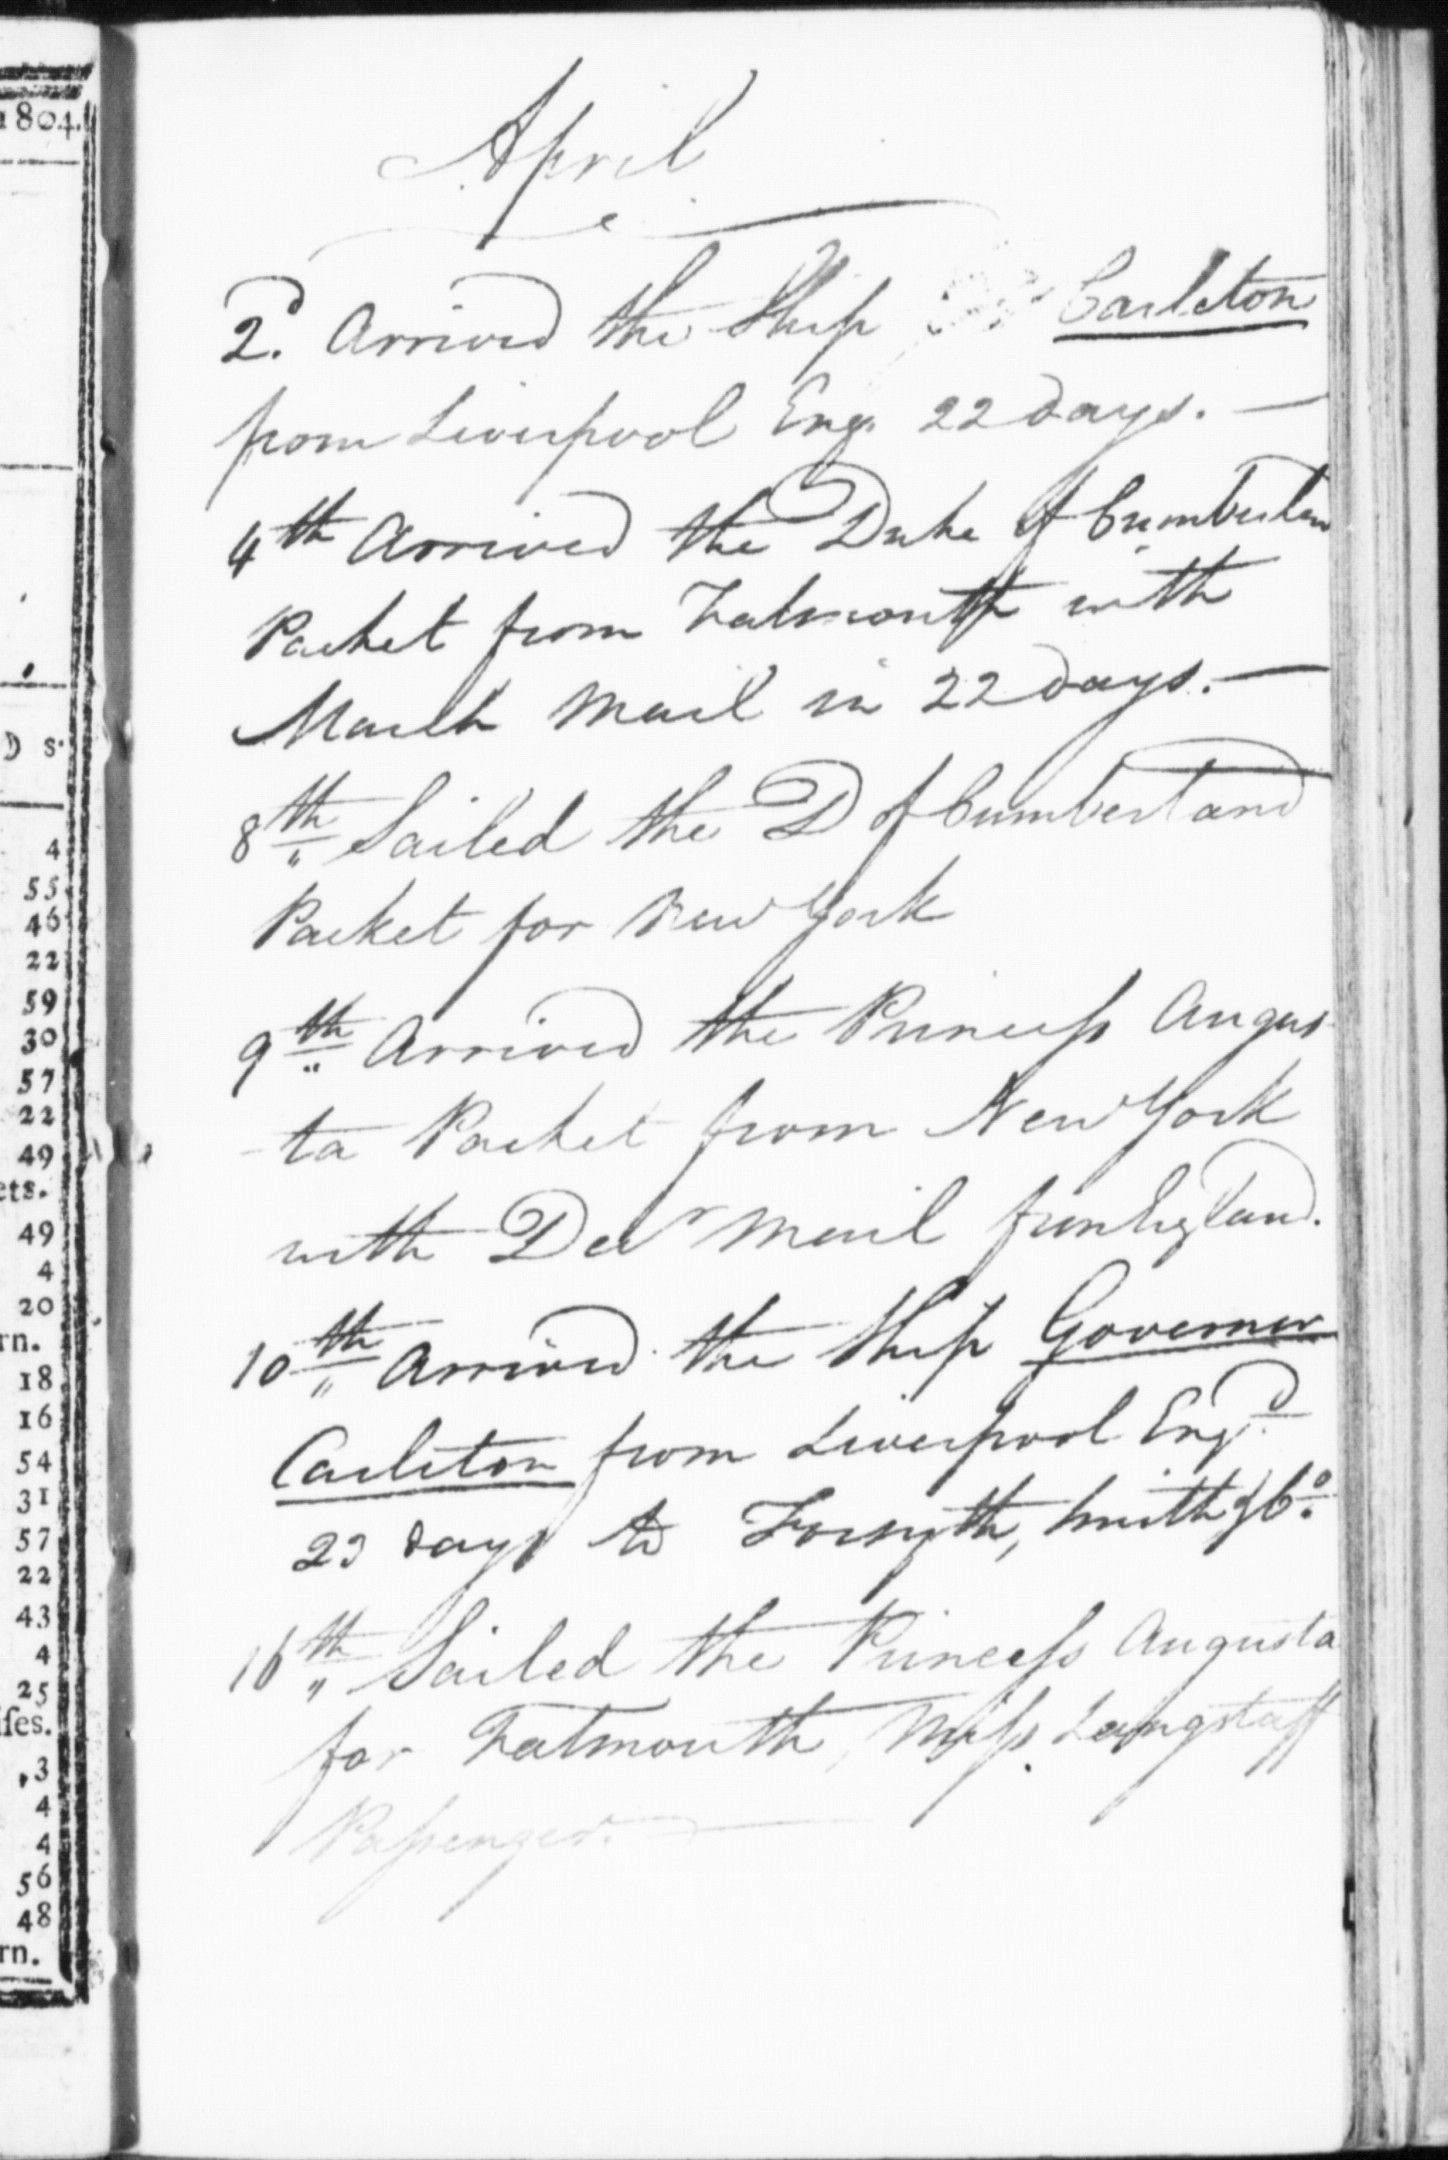 1804.
D s.
4
55
46
22
59
30
57
22
49
cts.
49
4
20
rn.
18
16
54
31
57
22
43
4
25
ifes.
3
4
4
56
48
rn.
April
2.d Arrived the Ship Carleton
from Liverpool Eng. 22 days. —
4th Arrived the Duke of Cumberlan
Packet from Falmouth with
March Mail in 22 days. —
8th Sailed the D of Cumberland
Packet for New York
9th Arrived the Princess Augus
-ta Packet from New York
with Decr Mail from England.
10th Arrived the Ship Governor
Carleton from Liverpool Engd
23 days to Forsyth, Smith & Co.
16th Sailed the Princess Augusta
for Falmouth, Miss. Langstaff
Passenger. —